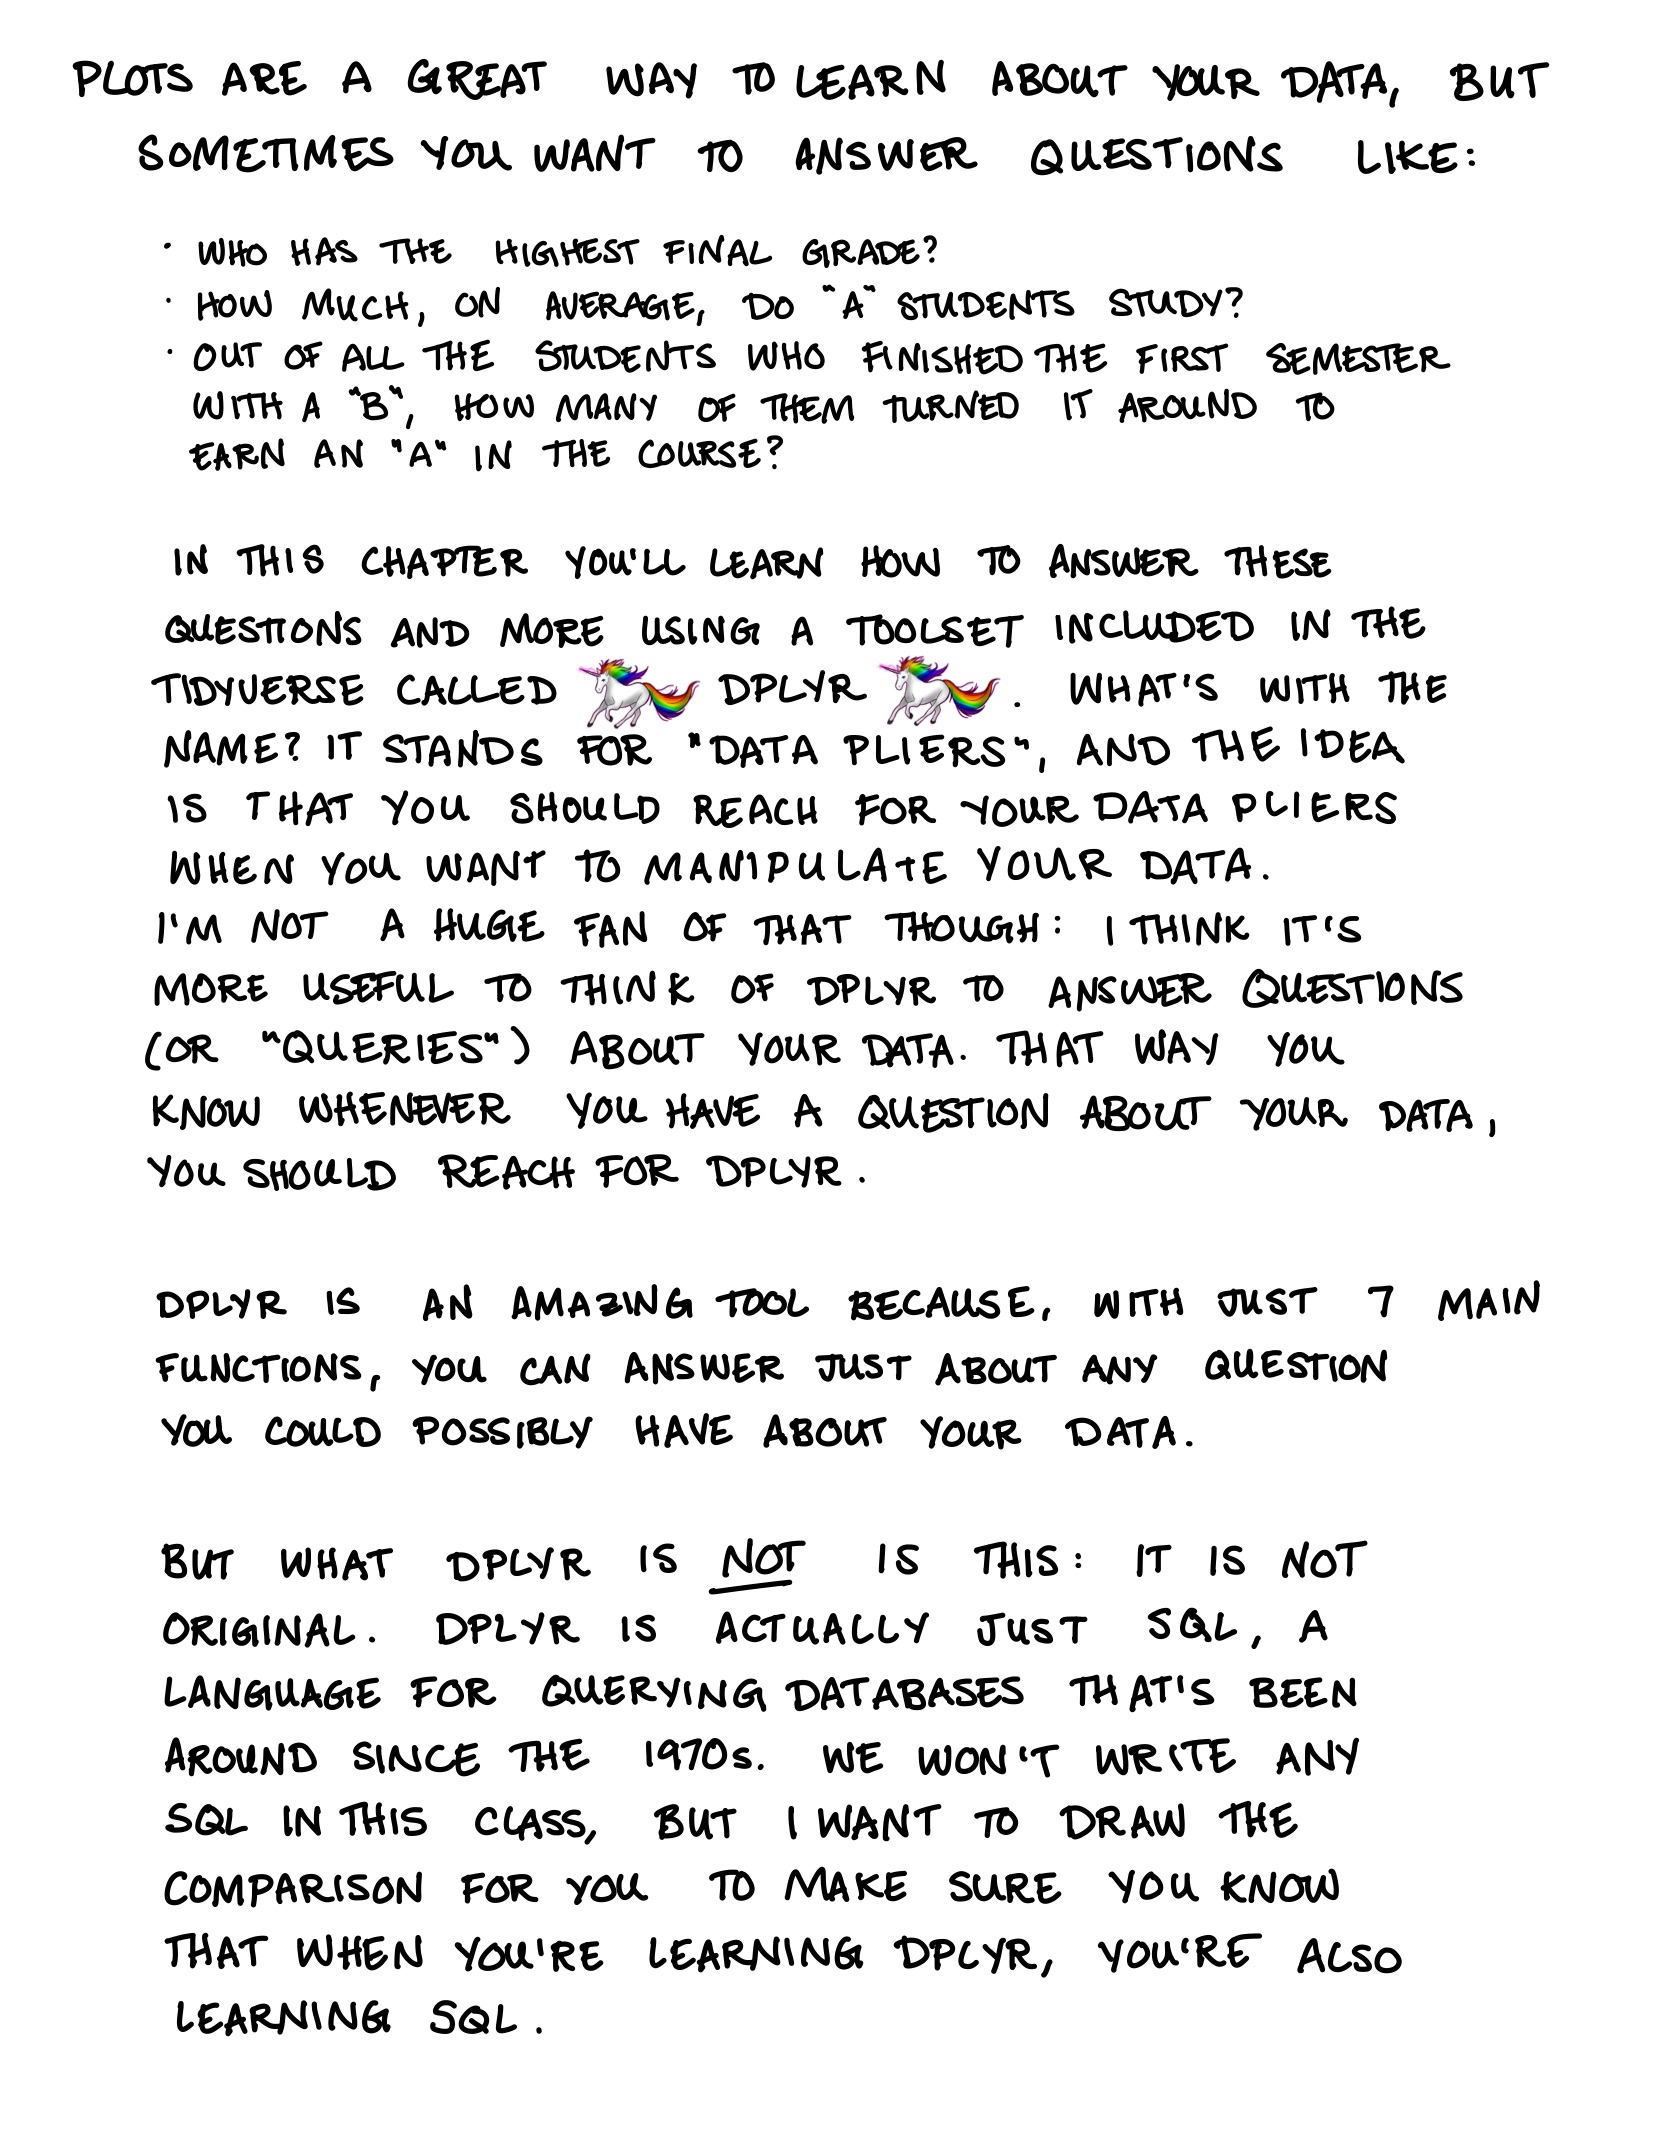 PLOTS ARE A GREAT WAY TO LEARN ABOUT YOUR DATA, BUT
SOMETIMES YOU WANT TO ANSWER QUESTIONS LIKE:
· WHO HAS THE HIGHEST FINAL GRADE?
· HOW MUCH, ON AVERAGE, DO "A" STUDENTS STUDY?
· OUT OF ALL THE STUDENTS WHO FINISHED THE FIRST SEMESTER
WITH A "B", HOW MANY OF THEM TURNED IT AROUND TO
EARN AN "A" IN THE COURSE?
IN THIS CHAPTER YOU'LL LEARN HOW TO ANSWER THESE
QUESTIONS AND MORE USING A TOOLSET INCLUDED IN THE
TIDYVERSE CALLED DPLYR . WHAT'S WITH THE
NAME? IT STANDS FOR "DATA PLIERS", AND THE IDEA
IS THAT YOU SHOULD REACH FOR YOUR DATA PLIERS
WHEN YOU WANT TO MANIPULATE YOUR DATA.
I'M NOT A HUGE FAN OF THAT THOUGH: I THINK IT'S
MORE USEFUL TO THINK OF DPLYR TO ANSWER QUESTIONS
(OR "QUERIES") ABOUT YOUR DATA. THAT WAY YOU
KNOW WHENEVER YOU HAVE A QUESTION ABOUT YOUR DATA,
YOU SHOULD REACH FOR DPLYR.
DPLYR IS AN AMAZING TOOL BECAUSE, WITH JUST 7 MAIN
FUNCTIONS, YOU CAN ANSWER JUST ABOUT ANY QUESTION
YOU COULD POSSIBLY HAVE ABOUT YOUR DATA.
BUT WHAT DPLYR IS NOT IS THIS: IT IS NOT
ORIGINAL. DPLYR IS ACTUALLY JUST SQL, A
LANGUAGE FOR QUERYING DATABASES THAT'S BEEN
AROUND SINCE THE 1970s. WE WON'T WRITE ANY
SQL IN THIS CLASS, BUT I WANT TO DRAW THE
COMPARISON FOR YOU TO MAKE SURE YOU KNOW
THAT WHEN YOU'RE LEARNING DPLYR, YOU'RE ALSO
LEARNING SQL.